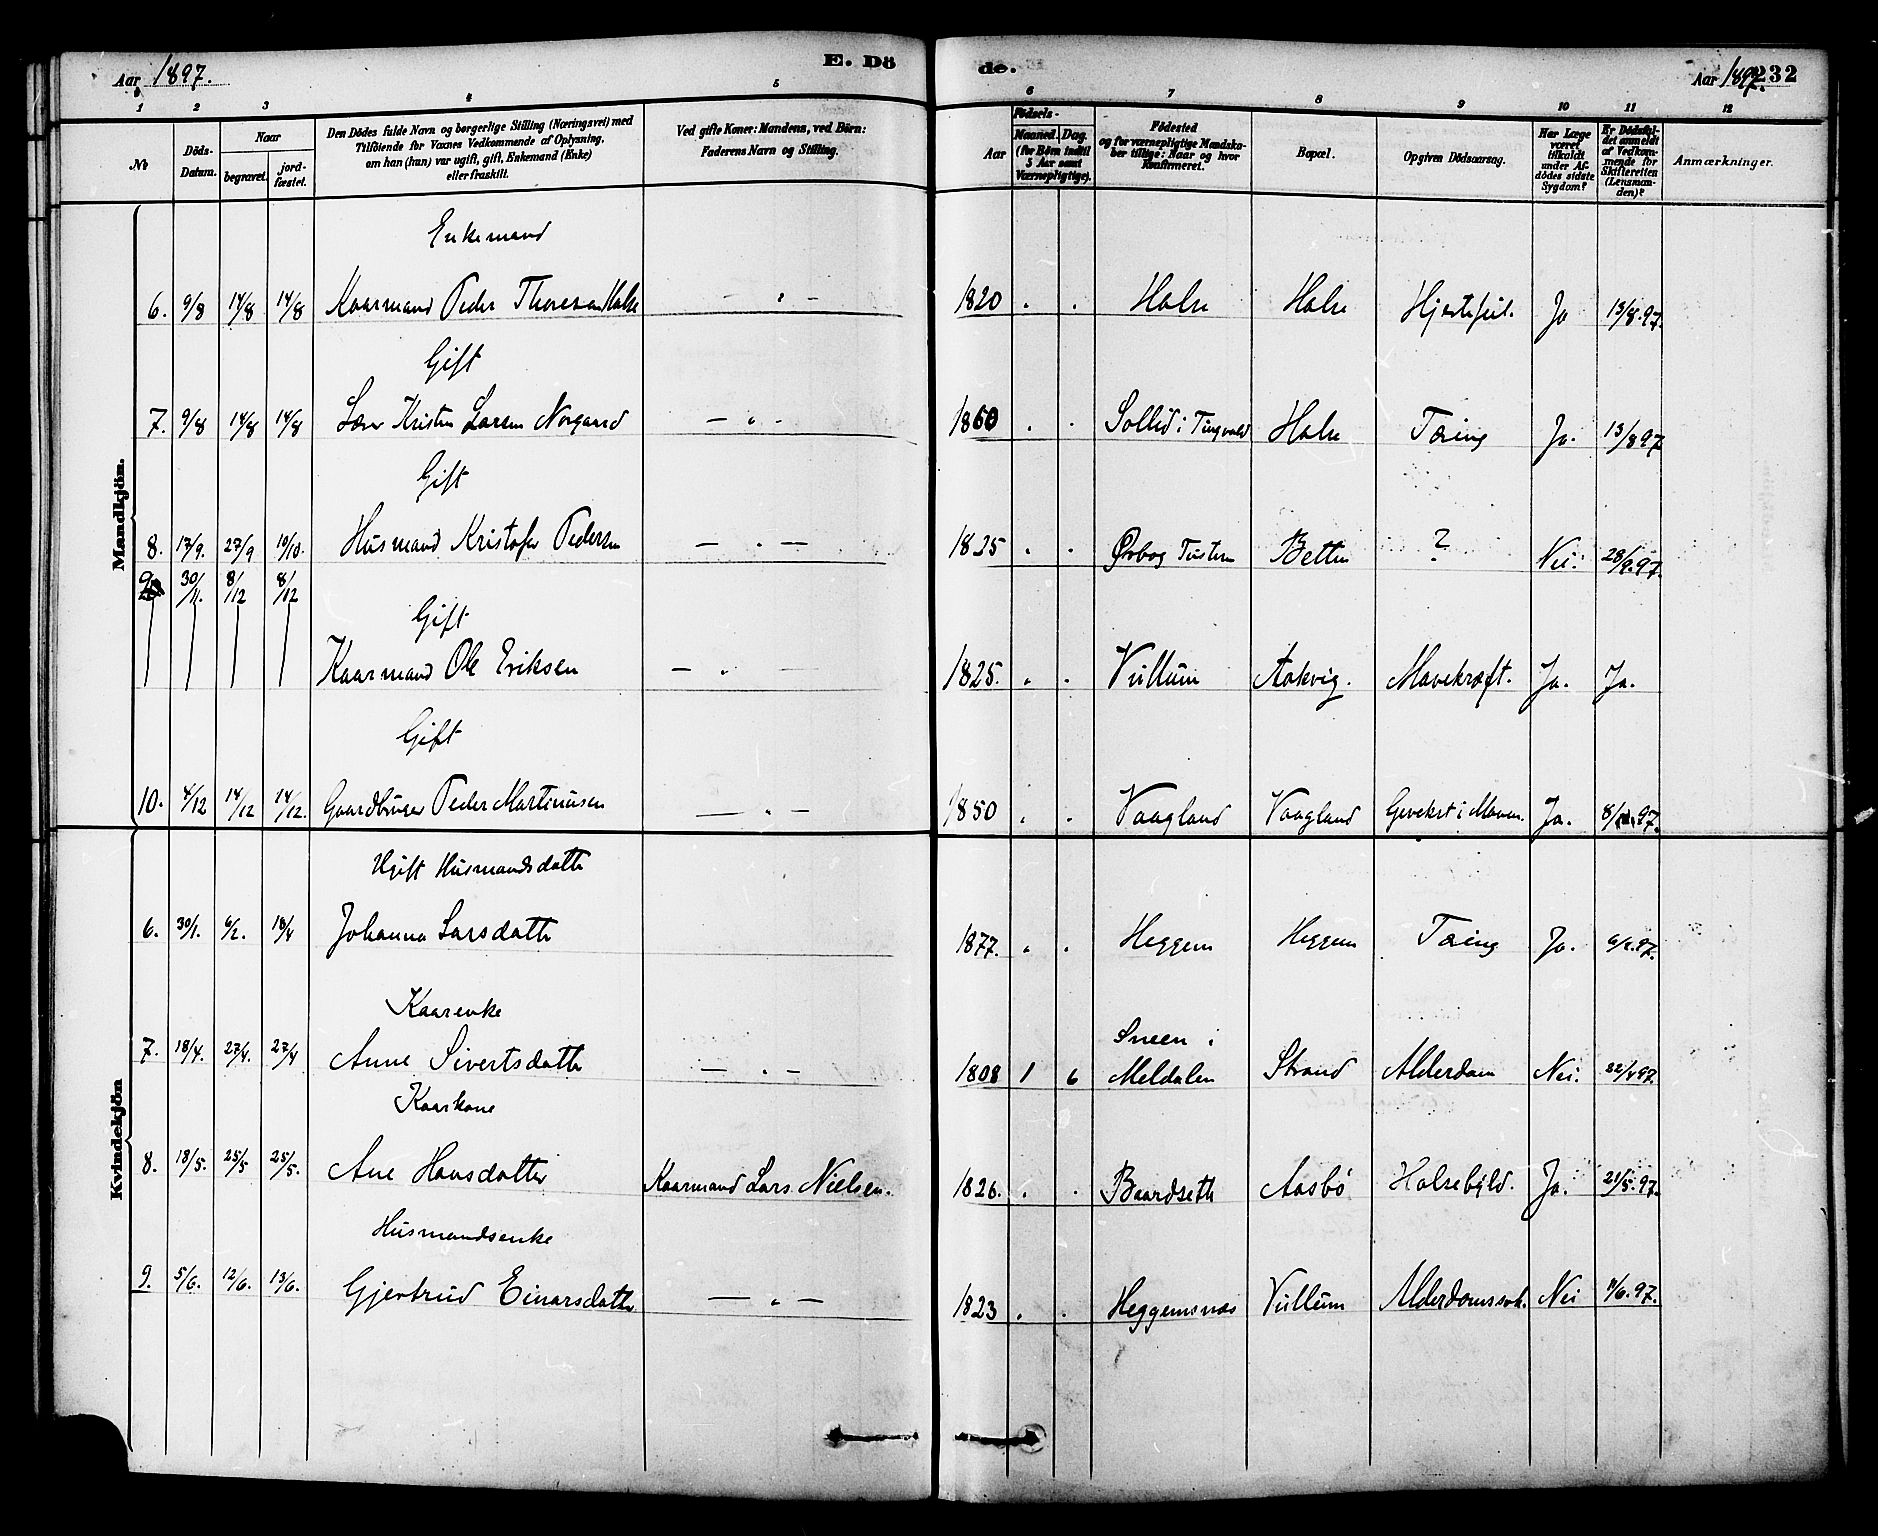 Aar 1897. E. Dö de. Aar 1897. 232
1 2 3 4 5 6 7 8 9 10 11 12
No
Döds-Datum.
Naar
begravet.
jord-fæstet.
Den Dödes fulde Navn og borgerlige Stilling (Næringsvei) med
Tilföiende for Voxnes Vedkommende af Oplysning,
om han (hun) var ugift, gift, Enkemand (Enke)
eller fraskilt.
Ved gifte Koner: Mandens, ved Börn:
Faderens Navn og Stilling.
Födsels-
Aar
Maaned. Dag.
(for Börn indtil
5 Aar samt
Værnepligtige).
Födested
og for værnepligtige Mandska-
ber tillige: Naar og hvor
Konfirmeret.
Bopæl.
Opgiven Dödsaarsag.
Har Læge
været
tilkaldt
under Af-
dödes sidste
Sygdom?
Er Dödsfal-
det anmeldt
af Vedkom-
mende for
Skifteretten
(Lensman-
den)?
Anmærkninger.
Mandkjön.
Enkemand
6. 9/8 14/8 14/8 Kaarmand Peder Thoresen Halse — " — 1820 . . Halse Halse Hjertefeil. Ja 13/8.97.
Gift
7. 9/8 14/8 14/8 Lærer Kristen Larsen Norgaard — " - 1860 . . Sollid i Tingvold Halse Tæring Ja. 13/8 97
Gift
8. 17/9. 27/9 10/10. Husmand Kristofer Pedersen — " — 1825 . . Ørbog Tustern Betten ? Nei. 28/9.97.
9 30/11. 8/12 8/12
Gift
Kaarmand Ole Eriksen — " — 1825. . . Vullum Aakvig. Mavekræft. Ja. Ja.
Gift
10. 4/12 14/12 14/12. Gaardbruger Peder Martinusen — " — 1850 . . Vaagland Vaagland Gevekst i Maven. Ja. 8/12.97.
Kvindekjön
Ugift Husmandsdatter
6. 30/1. 6/2. 18/4 Johanna Larsdatter 1877. . . Heggem Heggem Tæring Ja. 6/2.97.
Kaarenke
7. 18/4. 27/4. 27/4 Anne Sivertsdatter — " — 1808 1 6 Sneen i
Meldalen Strand Alderdom Nei. 22/4 97.
Kaarkone
8. 18/5. 25/5 25/5. Ane Hansdatter Kaarmand Lars Nielsen. 1826. . . Baardseth Aasbö Halsebyld. Ja. 21/5.97.
Husmandsenke
9. 5/6. 12/6. 13/6. Gjertrud Einarsdatter — " — 1823 . . Heggemsnæs Vullum Alderdomssvk. Nei 11/6.97.